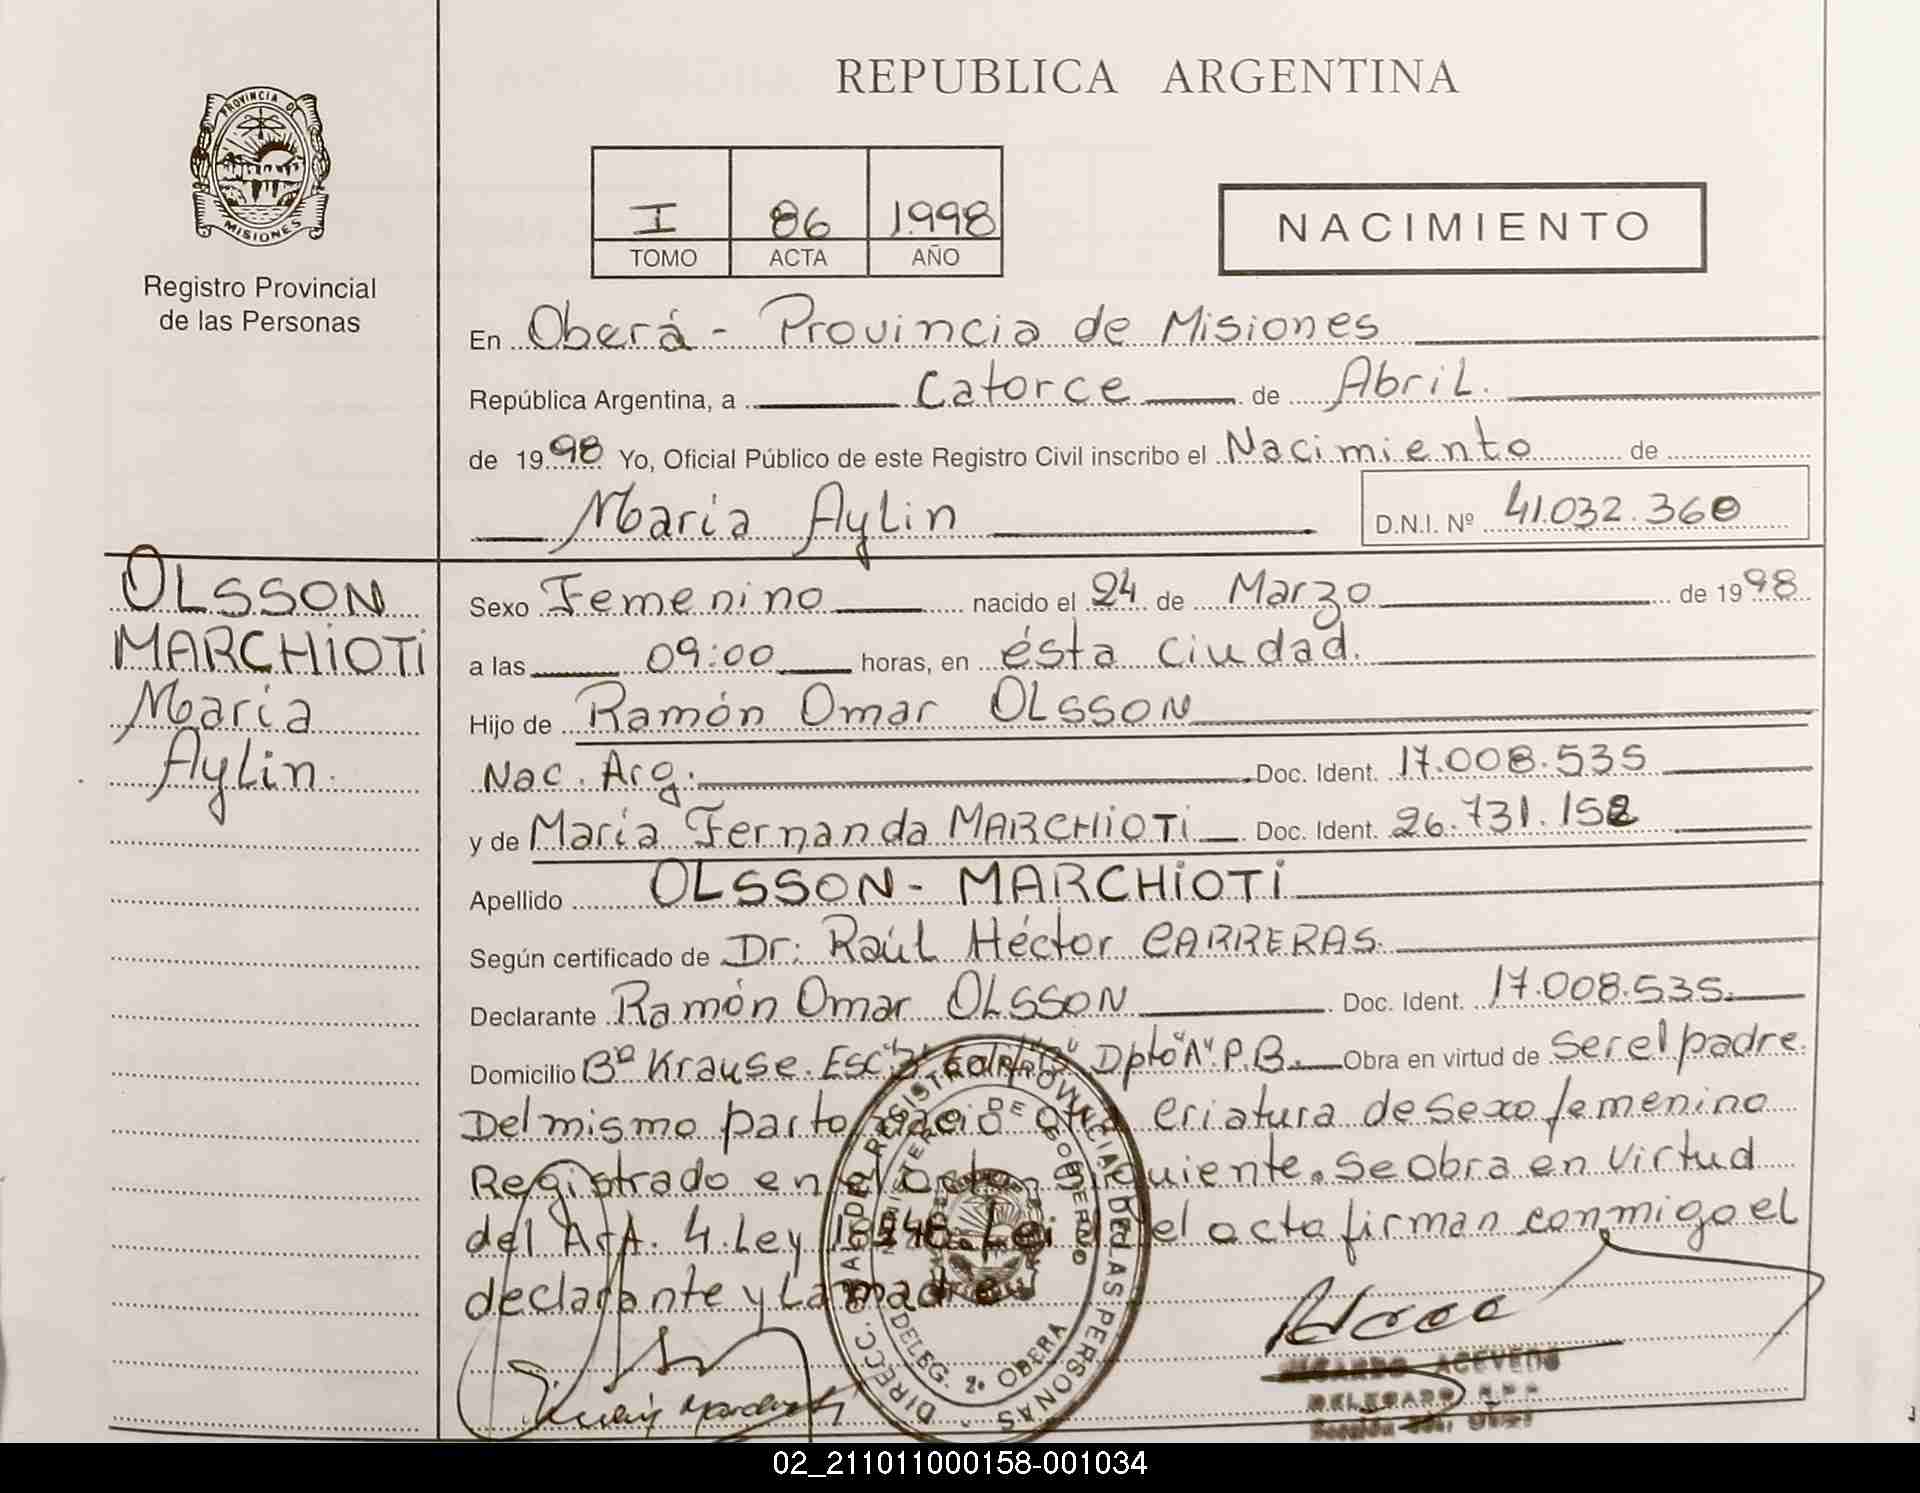 REPUBLICA ARGENTINA
PROVINCIA DE
MISIONES
Registro Provincial
de las Personas
I 86 1.998
TOMO ACTA AÑO
NACIMIENTO
En Oberá - Provincia de Misiones
República Argentina, a Catorce de Abril.
de 1998 Yo, Oficial Público de este Registro Civil inscribo el Nacimiento de
María Aylin D.N.I. Nº 41.032.360
OLSSON
MARCHiOTi
María
Aylin.
Sexo Femenino nacido el 24 de Marzo de 1998
a las 09:00 horas, en ésta ciudad.
Hijo de Ramón Omar OLSSON
Nac. Arg. Doc. Ident. 17.008.535
y de María Fernanda MARCHiOTi Doc. Ident. 26.731.152
Apellido OLSSON - MARCHiOTi
Según certificado de Dr: Raúl Héctor CARRERAS.
Declarante Ramón Omar OLSSON Doc. Ident. 17.008.535.
Domicilio Bº Krause. Esc. Dpto "A" P.B. Obra en virtud de ser el padre.
Del mismo parto nació otra criatura de sexo femenino
Registrado en el acta siguiente. Se Obra en virtud
del Art. 4. Ley 18248. Leida el acta firman conmigo el
declarante y La madre
DIRECC. GRAL. DEL REGISTRO PROVINCIAL DE LAS PERSONAS
MINISTERIO DE GOBIERNO
DELEG. 2º OBERA
RICARDO ACEVEDO
DELEGADO
02_211011000158-001034